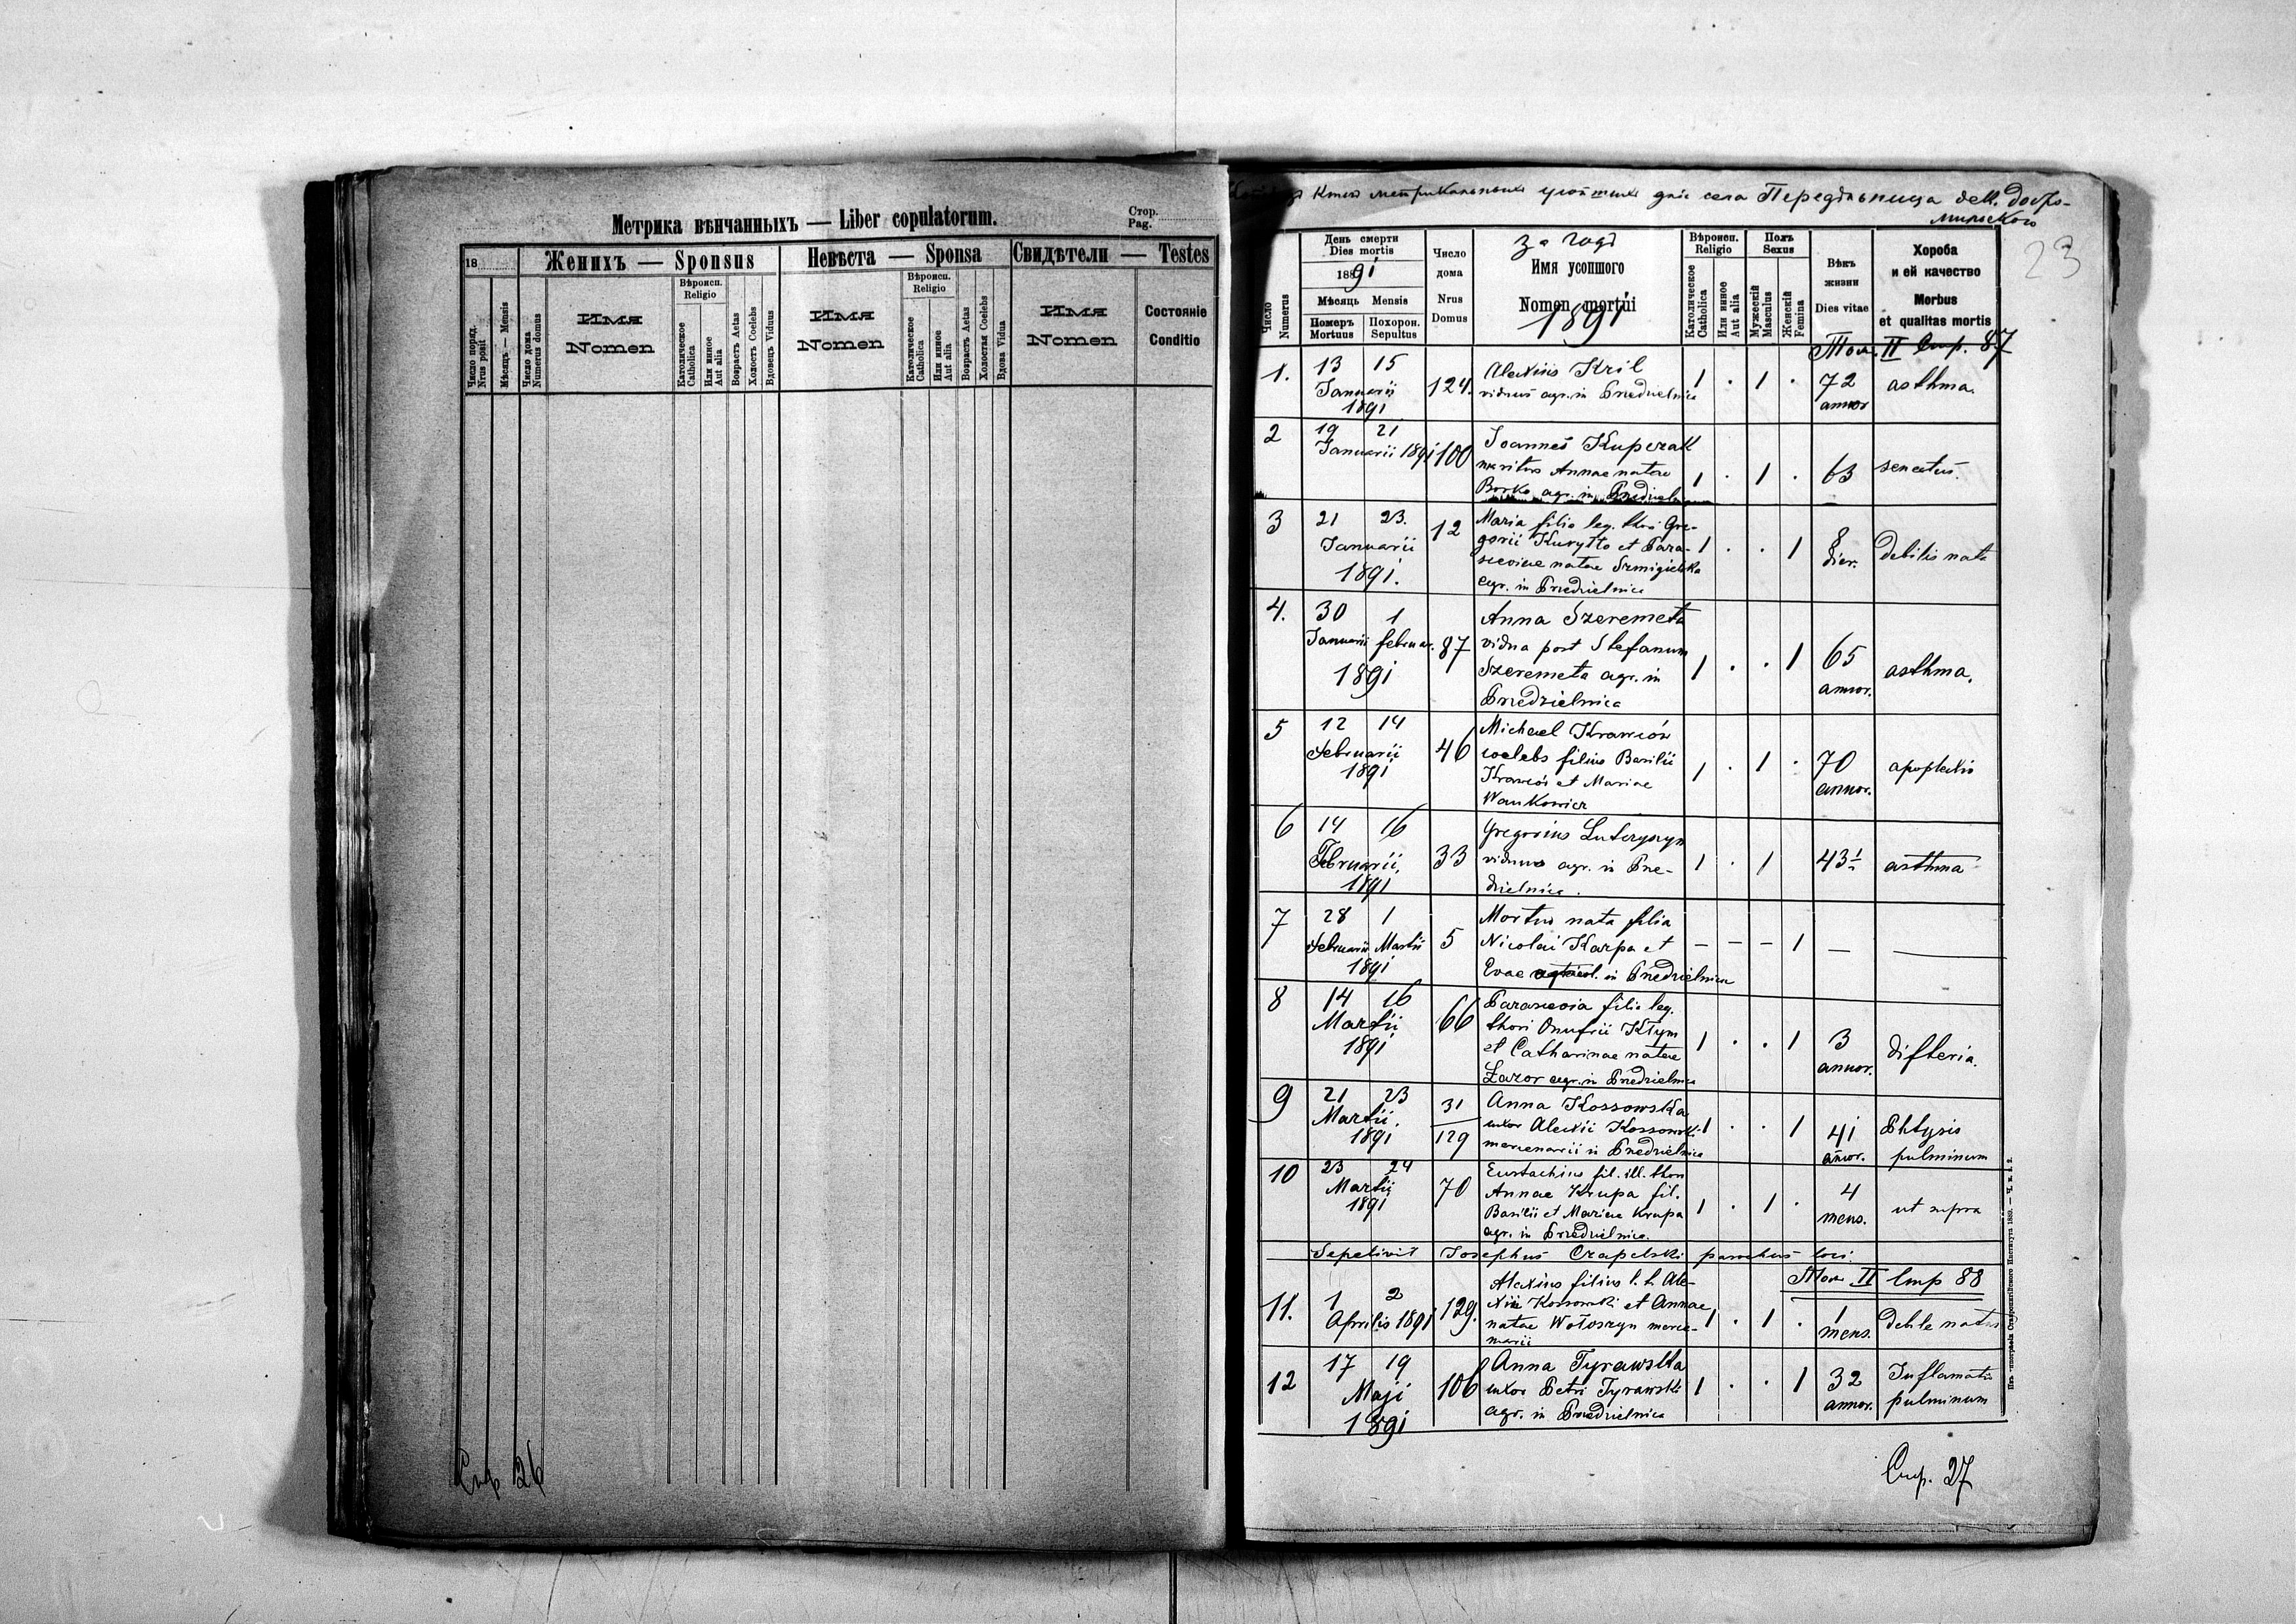 Метрика вѣнчанныхъ — Liber copulatorum.
Стор.
Pag.
18
Женихъ — Sponsus
Невѣста — Sponsa
Свидѣтели — Testes
Число поряд.
Nrus ponit
Мѣсяць — Mensis
Число дома
Numerus domus
Имя
Nomen
Вѣроисп.
Religio
Католическое
Catholica
Или инное
Aut alia
Возрастъ Aetas
Холостъ Coelebs
Вдовецъ Viduus
Имя
Nomen
Вѣроисп.
Religio
Католическое
Catholica
Или инное
Aut alia
Возрастъ Aetas
Холостая Coelebs
Вдова Vidua
Имя
Nomen
Состояніе
Conditio
Стр 26
книгъ метрикальныхъ дла села Передѣльница дек. Добро-
мильского
23
Число
Numerus
День смерти
Dies mortis
1891
Мѣсяць Mensis
Померъ
Mortuus
Похорон.
Sepultus
Число
дома
Nrus
Domus
за годъ
Имя усопшого
Nomen mortui
1891
Вѣроисп.
Religio
Католическое
Catholica
Или инное
Aut alia
Полъ
Sexus
Мужескій
Masculus
Женскій
Femina
Вѣкъ
жизни
Dies vitae
Хороба
и ей качество
Morbus
et qualitas mortis
Том. II Стр. 87
1. 13 15 Januarii 1891 124. Alexius Kril
viduus agr. in Przedzielnica
1 . 1 . 72 annor asthma.
2 19 21 Januarii 1891 100 Joannes Kuperak
maritus Annae natae
Borko agr. in Przedzielnica
1 . 1 . 63 senectus.
3 21 23. Januarii 1891. 12 Maria filia leg. thori Gre-
gorii Kuryłło et Para-
sceviae natae Szmigielska
agr. in Przedzielnica
1 . . 1 8 dier. debilis nata
4. 30 Januarii 1 februar. 1891 87 Anna Szeremeta
vidua post Stefanum
Szeremeta agr. in
Przedzielnica
1 . . 1 65 annor. asthma.
5 12 14 Februarii 1891 46 Michael Krawców
coelebs filius Basilii
Krawców et Mariae
Wankowicz
1 . 1 . 70 annor. apoplexio
6 14 16 Februarii, 1891 33 Gregorius
viduus agr. in Prze-
dzielnica.
1 . 1 43 asthma
7 28 Februarii 1 Martii 1891 5 Mortua nata filia
Nicolai Karpa et
Evae in Przedzielnica
— — — 1 — —
8 14 16 Martii 1891 66 Parascevia filia leg.
thori Onufrii Kłym
et Catharinae natae
Łazor agr. in Przedzielnica
1 . . 1 3 annor. difteria.
9 21 23 Martii. 1891 31 129 Anna Kossowska
uxor Alexii Kossowski
mercenarii in Przedzielnica
1 . . 1 41 annor. Phtysis
pulminum
10 23 24 Martii 1891 70 Eustachius fil. ill. thori
Annae Krupa fil.
Basilii et Mariae Krupa
agr. in Przedzielnica.
1 . 1 . 4 mens. ut supra
Sepelivit Josephus Czapelski parochus loci.
Том II Стр 88
11. 1 2 Aprilis 1891 129. Alexius filius l. t. Ale-
xii Kossowski et Annae
natae Wołoszyn merce-
narii
1 . 1 . 1 mens. debile natus
12 17 19 Maji 1891 106 Anna Tyrawska
uxor Petri Tyrawski
agr. in Przedzielnica
1 . . 1 32 annor. Inflamatio
pulminum
Стр. 27